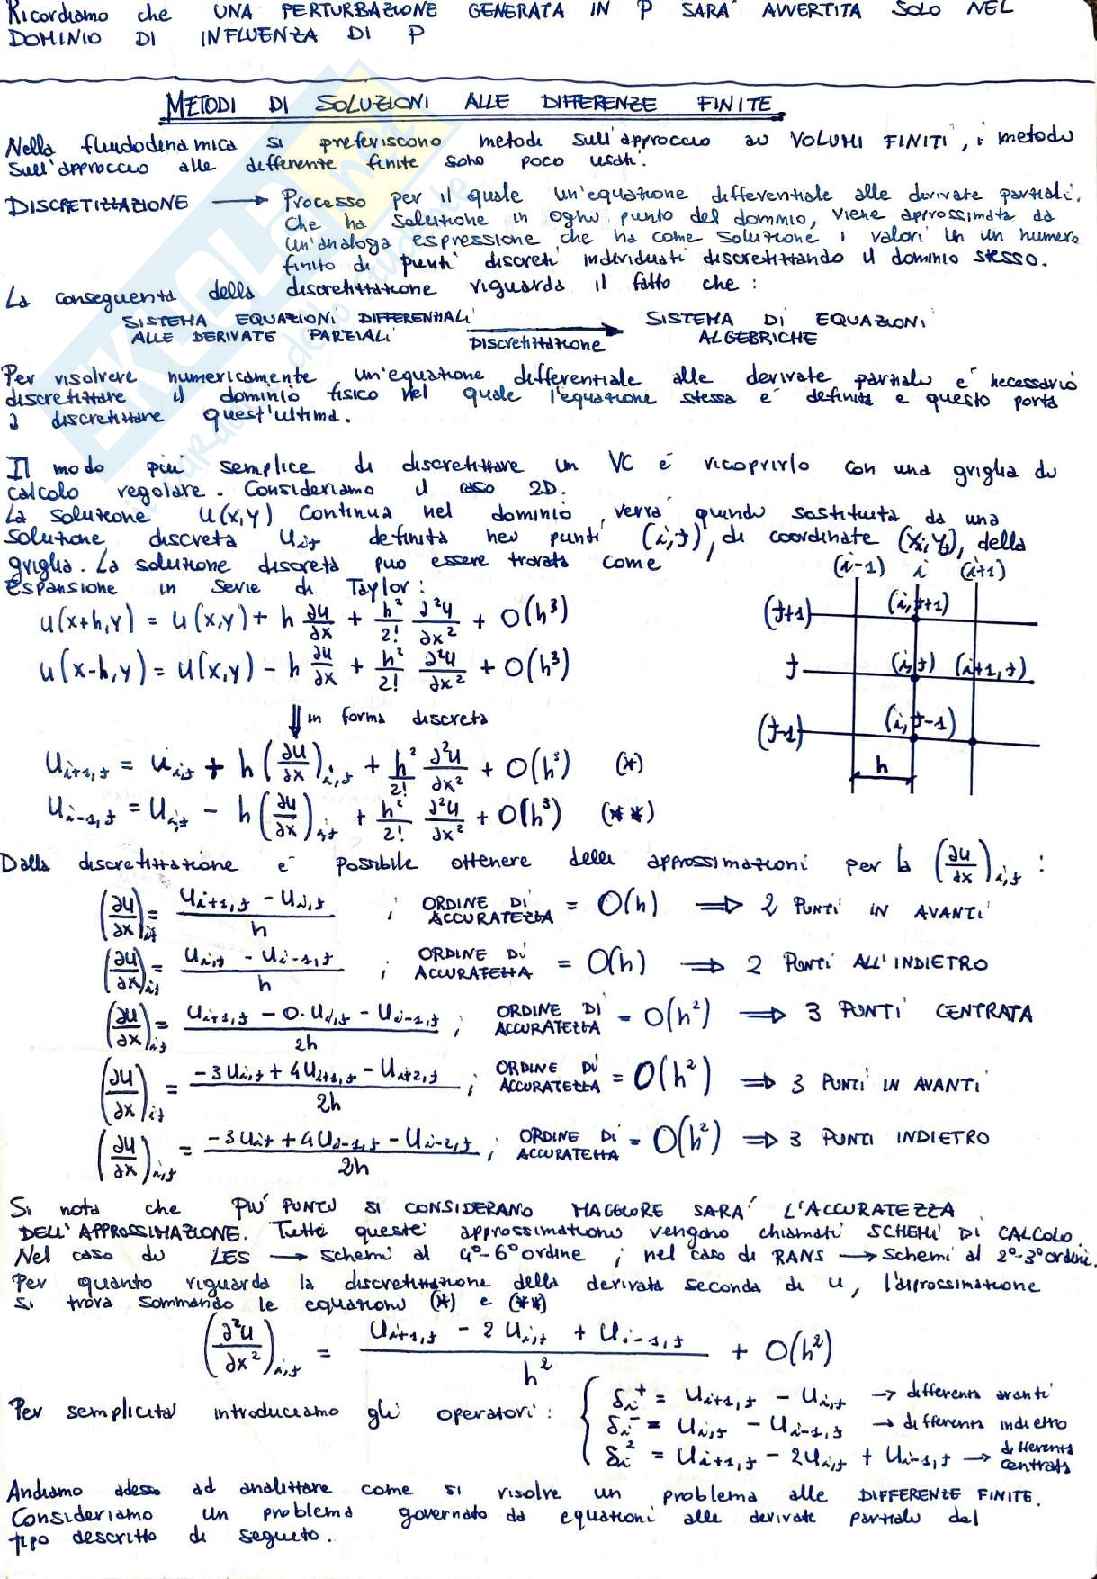 Ricordiamo che UNA PERTURBAZIONE GENERATA IN P SARA' AVVERTITA SOLO NEL
DOMINIO DI INFLUENZA DI P
METODI DI SOLUZIONI ALLE DIFFERENZE FINITE
Nella fluidodinamica si preferiscono metodi sull'approccio ai VOLUMI FINITI, i metodi
sull'approccio alle differenze finite sono poco usati.
DISCRETIZZAZIONE → Processo per il quale un'equazione differenziale alle derivate parziali,
che ha soluzione in ogni punto del dominio, viene approssimata da
un'analoga espressione che ha come soluzione i valori in un numero
finito di punti discreti individuati discretizzando il dominio stesso.
La conseguenza della discretizzazione riguarda il fatto che:
SISTEMA EQUAZIONI DIFFERENZIALI → SISTEMA DI EQUAZIONI
ALLE DERIVATE PARZIALI Discretizzazione ALGEBRICHE
Per risolvere numericamente un'equazione differenziale alle derivate parziali e' necessario
discretizzare il dominio fisico nel quale l'equazione stessa e' definita e questo porta
a discretizzare quest'ultima.
Il modo piu' semplice di discretizzare un VC e' ricoprirlo con una griglia di
calcolo regolare. Consideriamo il caso 2D.
La soluzione u(x,y) continua nel dominio, verra' quindi sostituita da una
soluzione discreta u_{i,j} definita nei punti (i,j), di coordinate (x_i, y_j), della
griglia. La soluzione discreta puo' essere trovata come
espansione in serie di Taylor:
(i-1) i (i+1)
u(x+h,y) = u(x,y) + h ∂u/∂x + h²/2! ∂²u/∂x² + O(h³)
(j+1) (i,j+1)
u(x-h,y) = u(x,y) - h ∂u/∂x + h²/2! ∂²u/∂x² + O(h³)
j (i,j) (i+1,j)
⇓ in forma discreta
(j-1) (i,j-1)
u_{i+1,j} = u_{i,j} + h (∂u/∂x)_{i,j} + h²/2! ∂²u/∂x² + O(h³) (*)
h
u_{i-1,j} = u_{i,j} - h (∂u/∂x)_{i,j} + h²/2! ∂²u/∂x² + O(h³) (**)
Dalla discretizzazione e' possibile ottenere delle approssimazioni per la (∂u/∂x)_{i,j} :
(∂u/∂x)_{i,j} = (u_{i+1,j} - u_{i,j})/h ; ORDINE DI ACCURATEZZA = O(h) ⇒ 2 PUNTI IN AVANTI
(∂u/∂x)_{i,j} = (u_{i,j} - u_{i-1,j})/h ; ORDINE DI ACCURATEZZA = O(h) ⇒ 2 PUNTI ALL'INDIETRO
(∂u/∂x)_{i,j} = (u_{i+1,j} - 0·u_{i,j} - u_{i-1,j})/2h ; ORDINE DI ACCURATEZZA = O(h²) ⇒ 3 PUNTI CENTRATA
(∂u/∂x)_{i,j} = (-3u_{i,j} + 4u_{i+1,j} - u_{i+2,j})/2h ; ORDINE DI ACCURATEZZA = O(h²) ⇒ 3 PUNTI IN AVANTI
(∂u/∂x)_{i,j} = (-3u_{i,j} + 4u_{i-1,j} - u_{i-2,j})/2h ; ORDINE DI ACCURATEZZA = O(h²) ⇒ 3 PUNTI INDIETRO
Si nota che PIU' PUNTI SI CONSIDERANO MAGGIORE SARA' L'ACCURATEZZA
DELL'APPROSSIMAZIONE. Tutte queste approssimazioni vengono chiamati SCHEMI DI CALCOLO.
Nel caso di LES → schemi al 4°-6° ordine ; nel caso di RANS → schemi al 2°-3° ordine.
Per quanto riguarda la discretizzazione della derivata seconda di u, l'approssimazione
si trova sommando le equazioni (*) e (**)
(∂²u/∂x²)_{i,j} = (u_{i+1,j} - 2u_{i,j} + u_{i-1,j})/h² + O(h²)
Per semplicita' introduciamo gli operatori: { δ_i⁺ = u_{i+1,j} - u_{i,j} → differenza avanti
δ_i⁻ = u_{i,j} - u_{i-1,j} → differenza indietro
δ_i² = u_{i+1,j} - 2u_{i,j} + u_{i-1,j} → differenza centrata
Andiamo adesso ad analizzare come si risolve un problema alle DIFFERENZE FINITE.
Consideriamo un problema governato da equazioni alle derivate parziali del
tipo descritto di seguito.